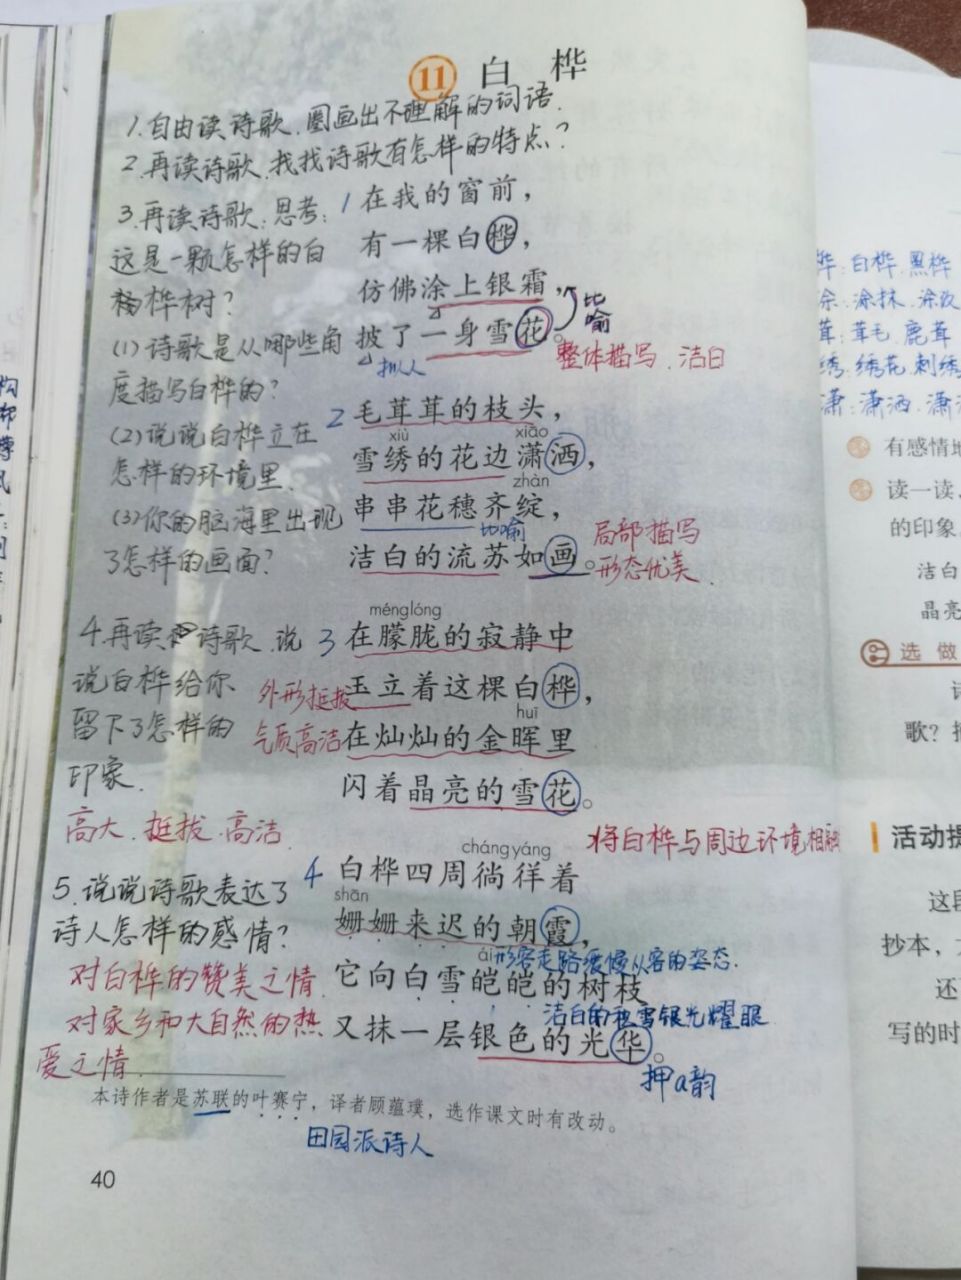 11 白桦
1.自由读诗歌.圈画出不理解的词语.
2.再读诗歌.找找诗歌有怎样的特点?
3.再读诗歌.思考:
这是一颗怎样的白
桦树?
(1)诗歌是从哪些角
度描写白桦的?
(2)说说白桦立在
怎样的环境里.
(3)你的脑海里出现
了怎样的画面?
4.再读诗歌.说
说白桦给你
留下了怎样的
印象.
高大.挺拔.高洁.
5.说说诗歌表达了
诗人怎样的感情?
对白桦的赞美之情.
对家乡和大自然的热
爱之情.
1 在我的窗前,
有一棵白桦,
仿佛涂上银霜,
比喻
披了一身雪花。
拟人
整体描写.洁白
2 毛茸茸的枝头,
xiù xiāo
雪绣的花边潇洒,
zhàn
串串花穗齐绽,
比喻
洁白的流苏如画。
局部描写
形态优美
ménglóng
3 在朦胧的寂静中
玉立着这棵白桦,
外形挺拔
huī
在灿灿的金晖里
气质高洁
闪着晶亮的雪花。
将白桦与周边环境相融
chángyáng
4 白桦四周徜徉着
shān
姗姗来迟的朝霞,
形容走路缓慢从容的姿态.
ái
它向白雪皑皑的树枝
洁白的 雪银光耀眼
又抹一层银色的光华。
押a韵
本诗作者是苏联的叶赛宁,译者顾蕴璞,选作课文时有改动。
田园派诗人
40
桦:白桦.黑桦
涂:涂抹.涂改
茸:茸毛.鹿茸
绣:绣花.刺绣
潇:潇洒.潇
有感情地
读一读.
的印象
洁白
晶亮
选做
歌?
活动提
这段
抄本,
还
写的时